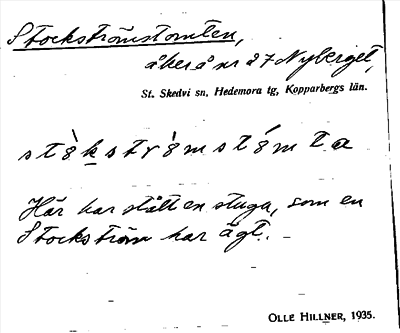 Stockströmstomten,
åker å nr 27 Nyberget,
St. Skedvi sn, Hedemora tg, Kopparbergs län.
stòkströ̀mstómta
Här har stått en stuga, som en
Stockström har ägt. –
OLLE HILLNER, 1935.